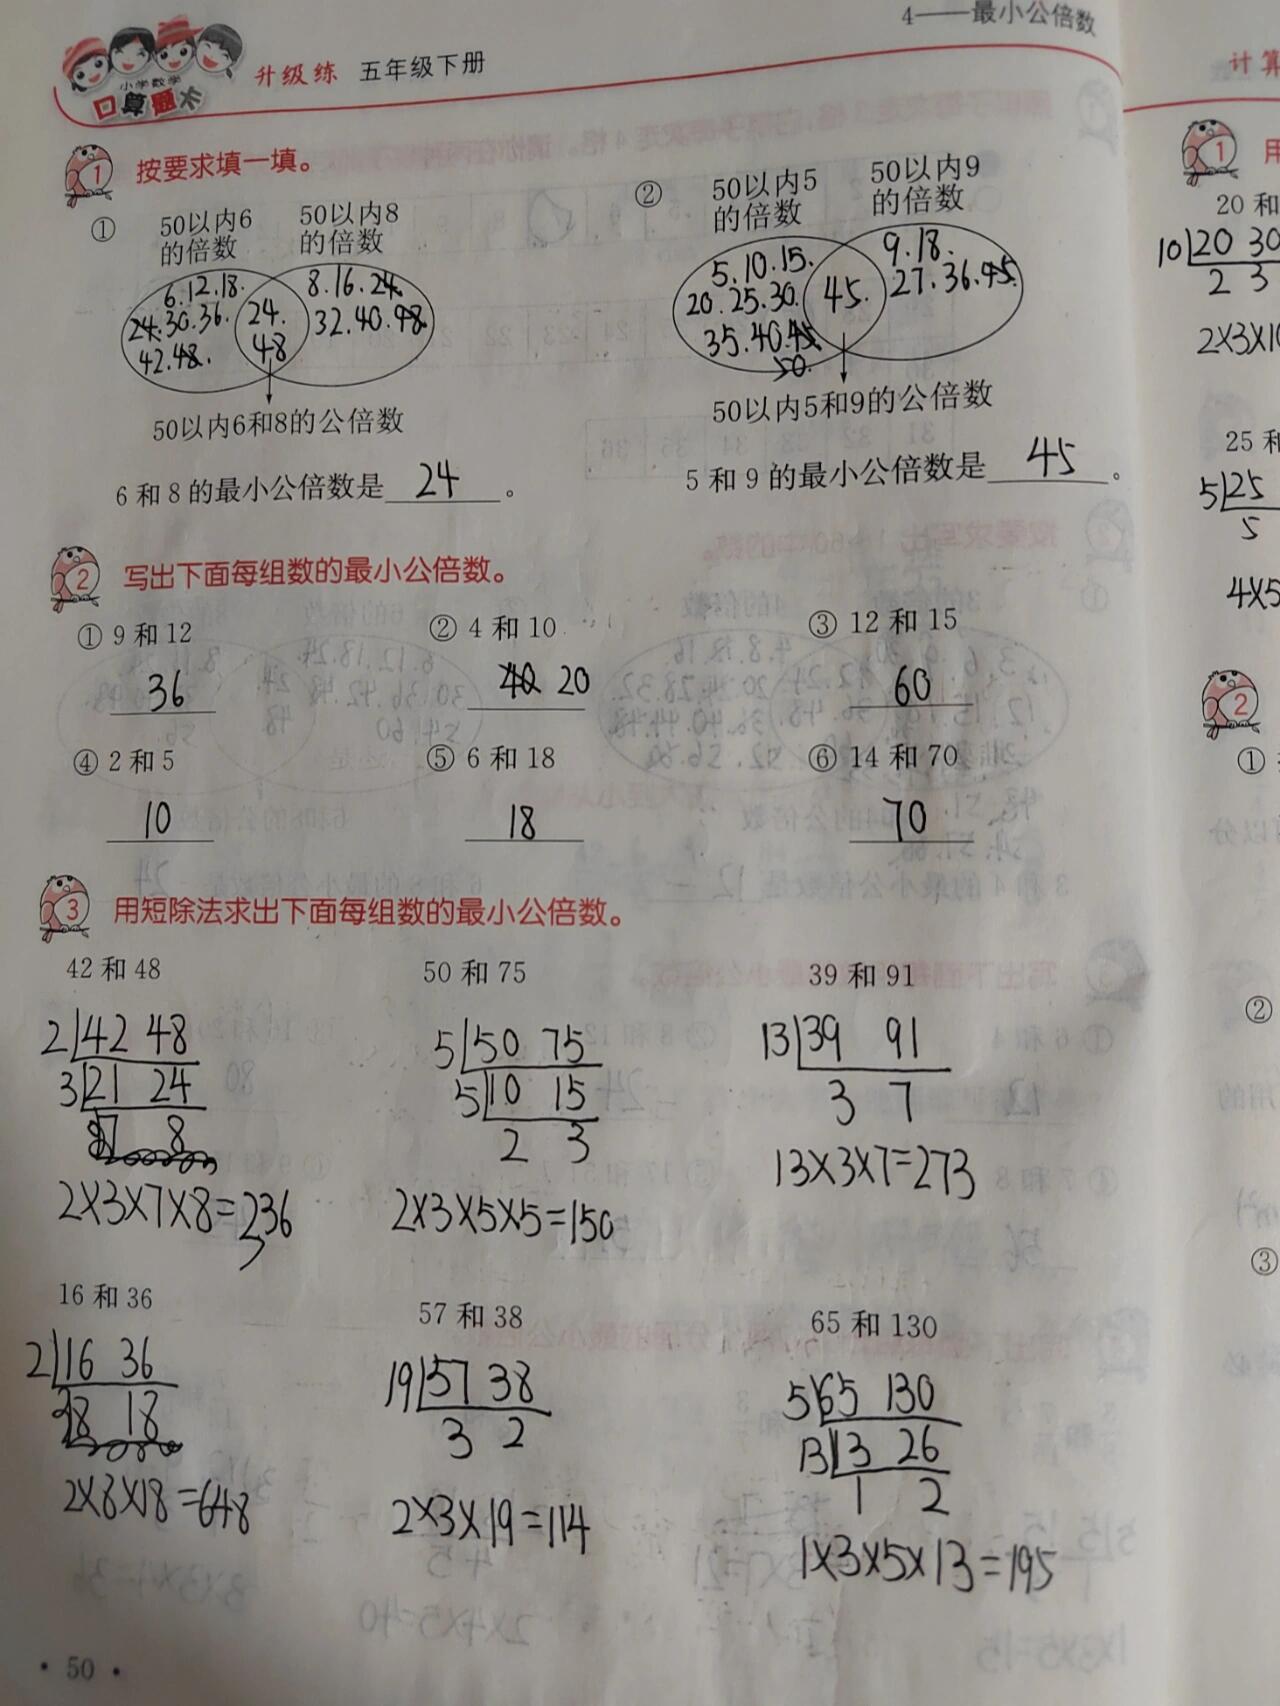 4——最小公倍数
小学数学
口算题卡
升级练 五年级下册
计算
1 按要求填一填。
① 50以内6的倍数 50以内8的倍数
6.12.18.
24.30.36.
42.48.
24.
48
8.16.24.
32.40.48.
50以内6和8的公倍数
6和8的最小公倍数是 24 。
② 50以内5的倍数 50以内9的倍数
5.10.15.
20.25.30.
35.40.45
50.
45.
9.18.
27.36.45.
50以内5和9的公倍数
5和9的最小公倍数是 45 。
2 写出下面每组数的最小公倍数。
① 9和12 ② 4和10 ③ 12和15
36 40 20 60
④ 2和5 ⑤ 6和18 ⑥ 14和70
10 18 70
3 用短除法求出下面每组数的最小公倍数。
42和48 50和75 39和91
2 42 48
3 21 24
7 8
2×3×7×8=236
5 50 75
5 10 15
2 3
2×3×5×5=150
13 39 91
3 7
13×3×7=273
16和36 57和38 65和130
2 16 36
8 18
2×8×18=648
19 57 38
3 2
2×3×19=114
5 65 130
13 13 26
1 2
1×3×5×13=195
· 50 ·
1 用
20和
10 20 30
2 3
2×3×10
25和
5 25
5
4×5
2
①
以分
②
用的
③